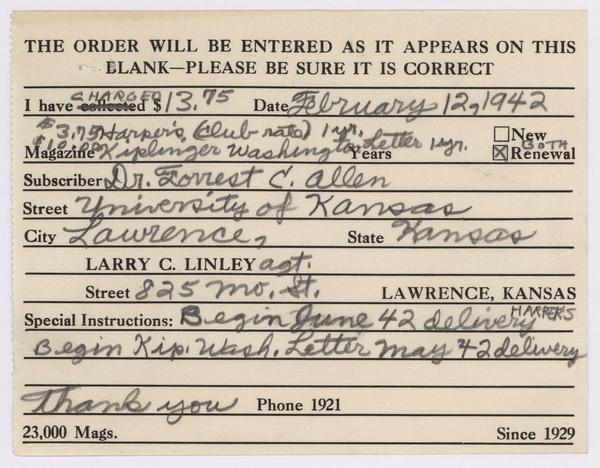 THE ORDER WILL BE ENTERED AS IT APPEARS ON THIS
BLANK—PLEASE BE SURE IT IS CORRECT
CHARGED
I have collected $13.75 Date February 12, 1942
$3.75 Harper's (Club-rate) 1 yr. New
$10.00 Magazine Kiplinger Washington Letter 1 yr. Years BOTH Renewal
Subscriber Dr. Forrest C. Allen
Street University of Kansas
City Lawrence, State Kansas
LARRY C. LINLEY agt.
Street 825 Mo. St. LAWRENCE, KANSAS
Special Instructions: Begin June 42 delivery HARPERS
Begin Kip. Wash. Letter May '42 delivery
Thank you Phone 1921
23,000 Mags. Since 1929